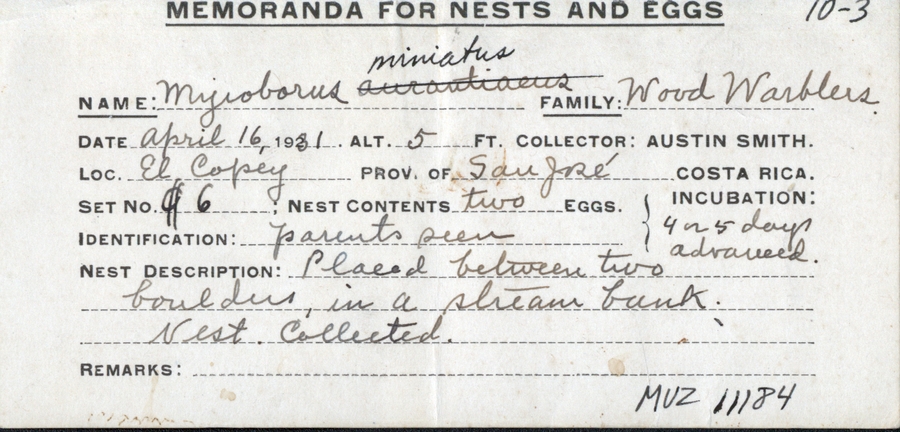 10-3
MEMORANDA FOR NESTS AND EGGS
miniatus
NAME: Myioborus aurantiacus FAMILY: Wood Warblers.
DATE April 16, 1931. ALT. 5 FT. COLLECTOR: AUSTIN SMITH.
LOC. El Copey PROV. OF San José COSTA RICA.
SET NO. 6 NEST CONTENTS two EGGS. INCUBATION:
4 or 5 days
IDENTIFICATION: parents seen
advanced.
NEST DESCRIPTION: Placed between two
boulders, in a stream bank.
Nest. Collected.
REMARKS:
MUZ 11184